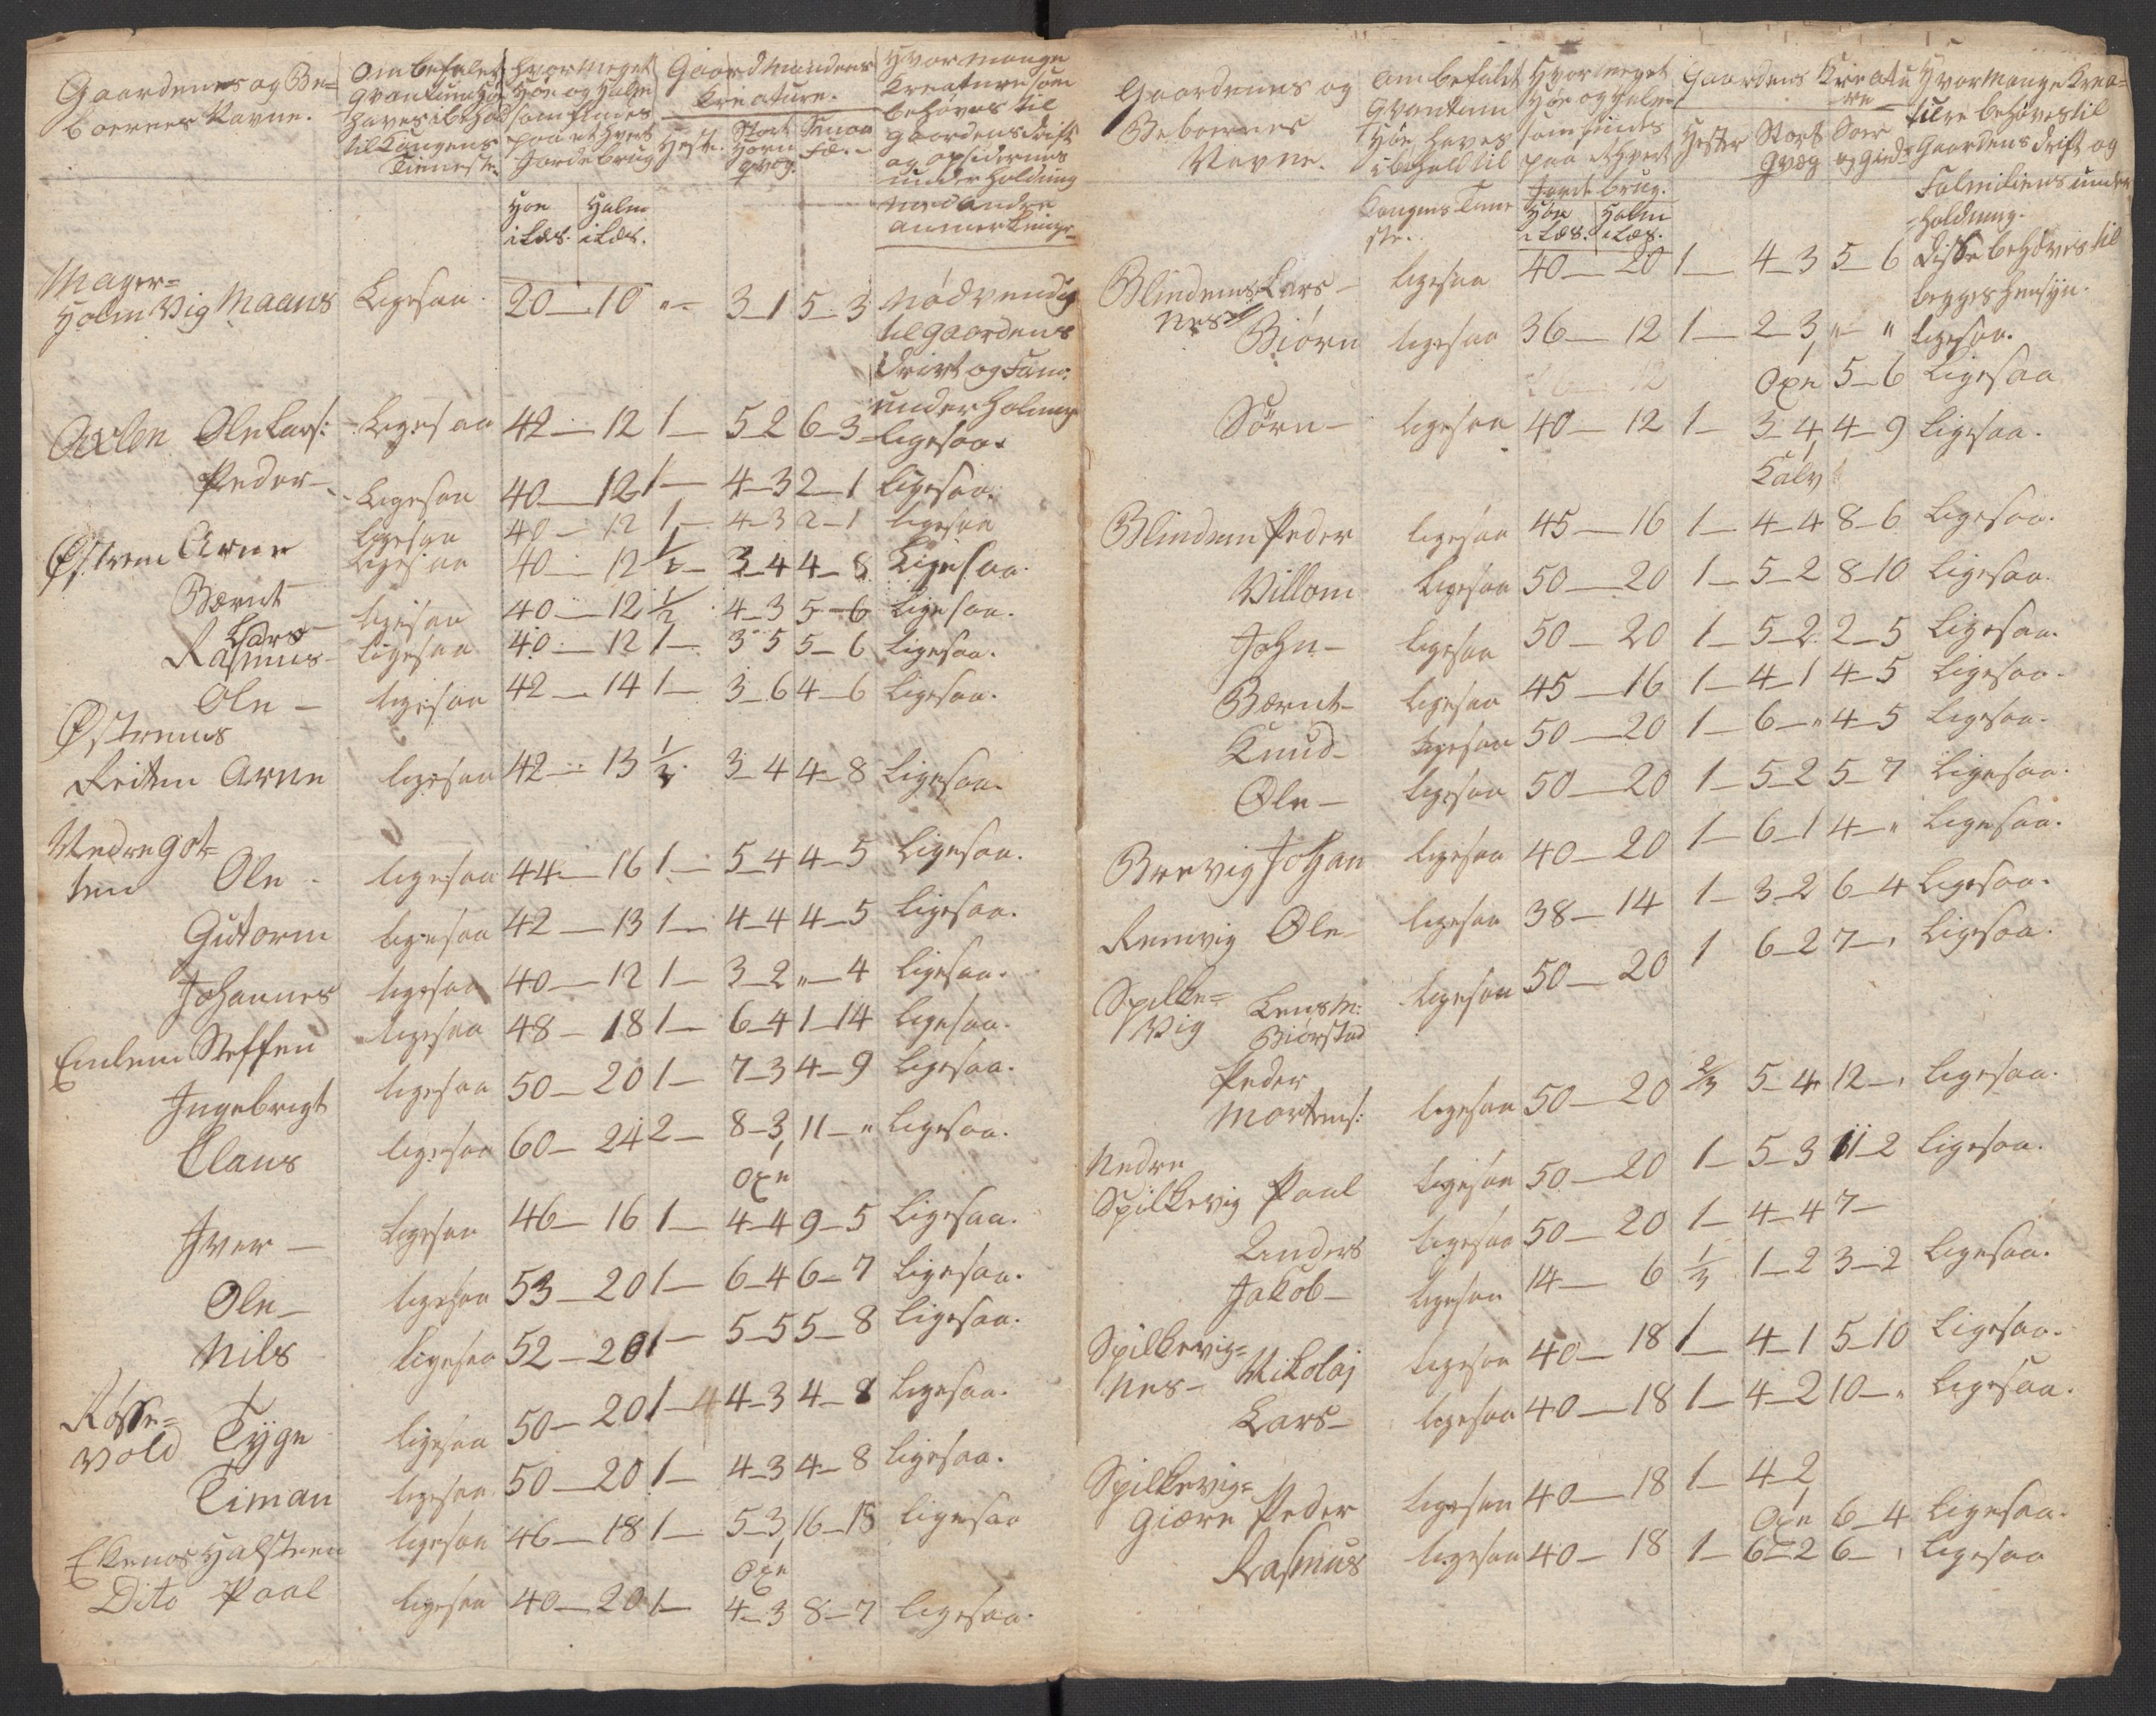 Gaardenes og Be=
boernes Navne.
Om befalet
Qvantum Høe
haves i behold
til Kongens
Tieneste.
hvor meget
Høe og Halm
som findes
paa et hvert
Jordebrug
Høe i Læs.
Halm i Læs.
Gaardmandens
Kreature.
Heste.
Stort Horn qvæg.
Smaa Fæ.
Hvor mange
Kreature som
behøves til
gaardens drift
og opsiderens
underholdning
med andre
anmerkninger
Mager=
Holm Vig Maans Ligesaa 20—10 "— 3—1 5—3 Nødvendig
til gaardens
Drivt og Fam:
underholdning
Axlen Ole Lars: Ligesaa 42—12 1— 5—2 6—3 ligesaa
Peder— Ligesaa 40—12 1— 4—3 2—1 Ligesaa.
ligesaa 40—12 1— 4—3 2—1 ligesaa
Østrem Arne Ligesaa 40—12 1/2— 3—4 4—8 Ligesaa.
Bernt— ligesaa 40—12 1/2 4—3 5—6 Ligesaa.
Lars
Rasmus— ligesaa 40—12 1— 3 5 5—6 Ligesaa.
Ole— ligesaa 42—14 1— 3—6 4—6 Ligesaa.
Østrems
Reiten Arne ligesaa 42—13 1/2 3—4 4—8 Ligesaa.
Nedre got=
ten Ole ligesaa 44—16 1— 5—4 4—5 Ligesaa.
Gutorm ligesaa 42—13 1— 4—4 4—5 Ligesaa.
Johannes ligesaa 40—12 1— 3—2 "—4 Ligesaa.
Emlem Steffen ligesaa 48—18 1— 6—4 1—14 Ligesaa.
Ingebrigt ligesaa 50—20 1— 7—3 4—9 Ligesaa.
Claus ligesaa 60—24 2— 8—3, 11—" Ligesaa.
1 Oxe
Iver— Ligesaa 46—16 1— 4—4 9—5 Ligesaa.
Ole— ligesaa 53—20 1— 6—4 6—7 Ligesaa.
Nils ligesaa 52—20 1— 5—5 5—8 Ligesaa.
Rosse=
vold Tyge ligesaa 50—20 1— 4—3 4—8 Ligesaa.
Timan ligesaa 50—20 1— 4—3 4—8 Ligesaa.
Ekenos Halsteen ligesaa 46—18 1— 5—3, 16—18 Ligesaa
1 Oxe
Dito Paal ligesaa 40—20 1— 4—3 8—7 Ligesaa.
Gaardenes og
Beboernes
Navne.
ambefaldt
Qvantum
Høe haves
i behold til
Kongens Tiene
ste.
Hvor meget
Høe og Halm
som findes
paa et hvert
Jorde brug.
Høe i Læs.
Halm i Læs.
Gaardens Kreatu
re
Hester
Stort Qvæg
Soer og Gieder
Hvor mange Krea=
ture behøves til
Gaardens drift og
Familiens under
holdning.
Blindems Lars— ligesaa 40—20 1— 4—3 5—6 Disse behøves til
begges hensyn.
Nes
Biørn ligesaa 36—12 1— 2—3, "—" ligesaa.
1 Oxe 5—6 Ligesaa
Sørn— ligesaa 40—12 1— 3—4, 4—9 Ligesaa.
1 Kalv
Blindem Peder ligesaa 45—16 1— 4—4 8—6 Ligesaa.
Villom ligesaa 50—20 1— 5—2 8—10 Ligesaa.
John— ligesaa 50—20 1— 5—2 2—5 Ligesaa.
Bernt— ligesaa 45—16 1— 4—1 4—5 Ligesaa.
Knud— ligesaa 50—20 1— 6—" 4—5 Ligesaa.
Ole— ligesaa 50—20 1— 5—2 5—7 Ligesaa.
Brevig Johan ligesaa 40—20 1— 6—1 4—" Ligesaa.
Remvig Ole— ligesaa 38—14 1— 3—2 6—4 Ligesaa.
Spilke=
Vig Lensm: ligesaa 50—20 1 6—2 7—, Ligesaa.
Biørstad
Peder
Mortens: ligesaa 50—20 2/3 5—4 12—, Ligesaa.
Nedre
Spilkevig Paul ligesaa 50—20 1— 5—3 11—2 Ligesaa.
Anders ligesaa 50—20 1— 4—4 7—
Jakob— ligesaa 14—6 1/3 1—2 3—2 Ligesaa.
Spilkevig=
Nes— Nikolaj ligesaa 40—18 1— 4—1 5—10 Ligesaa.
Lars— ligesaa 40—18 1— 4—2 10—" Ligesaa.
Spilkevig=
giære Peder ligesaa 40—18 1— 4—2,
1 Oxe 6—4 Ligesaa.
Rasmus ligesaa 40—18 1— 6—2 6—, Ligesaa